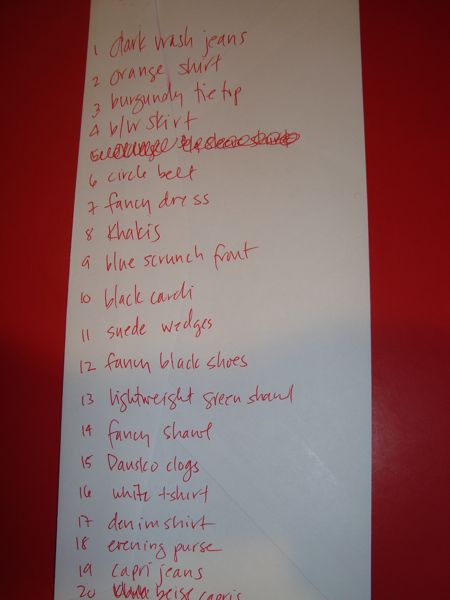 1 dark wash jeans
2 orange shirt
3 burgundy tie top
4 b/w skirt
6 circle belt
7 fancy dress
8 Khakis
9 blue scrunch front
10 black cardi
11 suede wedges
12 fancy black shoes
13 lightweight green shawl
14 fancy shawl
15 Dansko clogs
16 white t-shirt
17 denim shirt
18 evening purse
19 capri jeans
20 beige capris